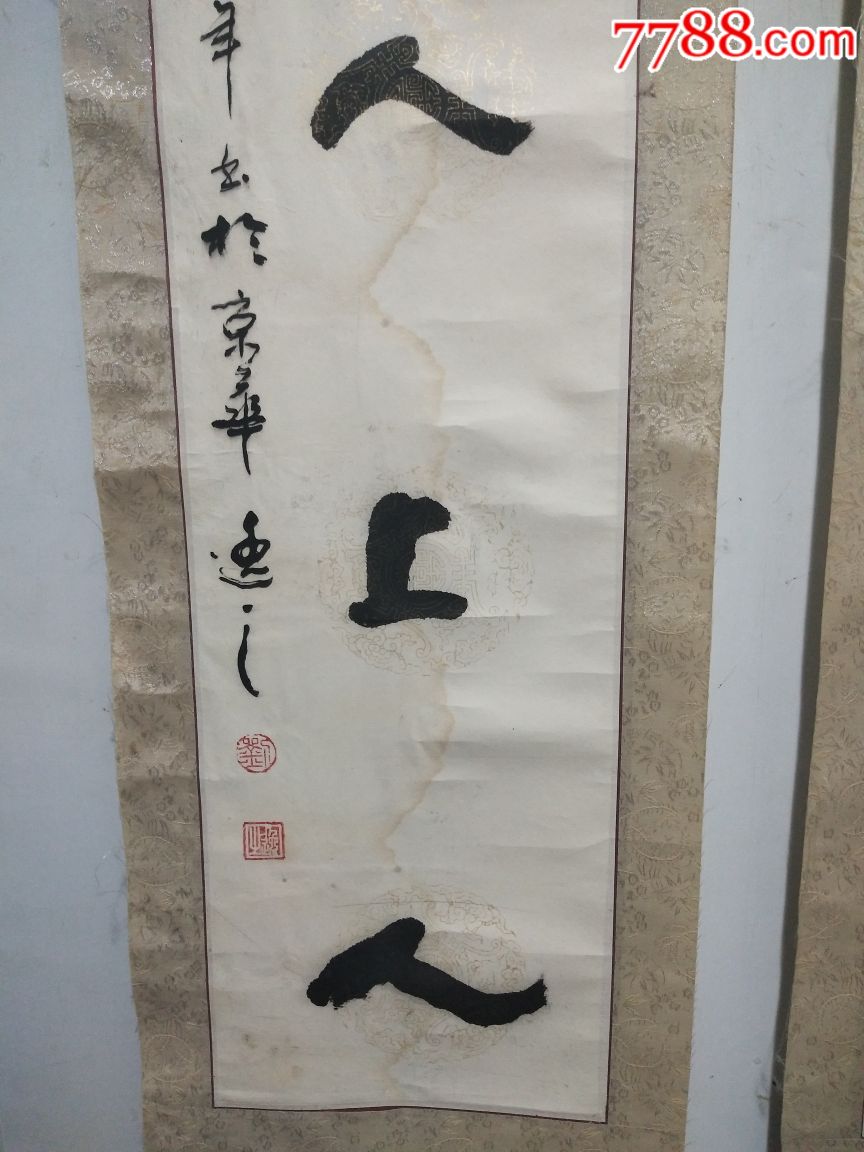 7788.com
人
上
人
年书於京華遜之
劉